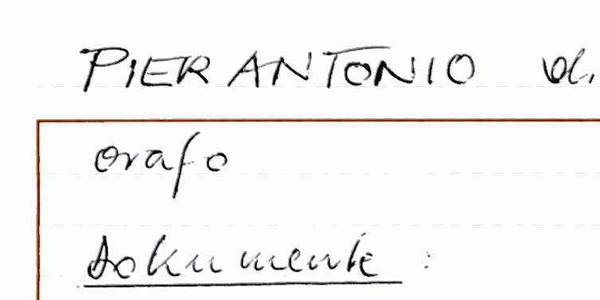 PIER ANTONIO d.
orafo
Dokumente :